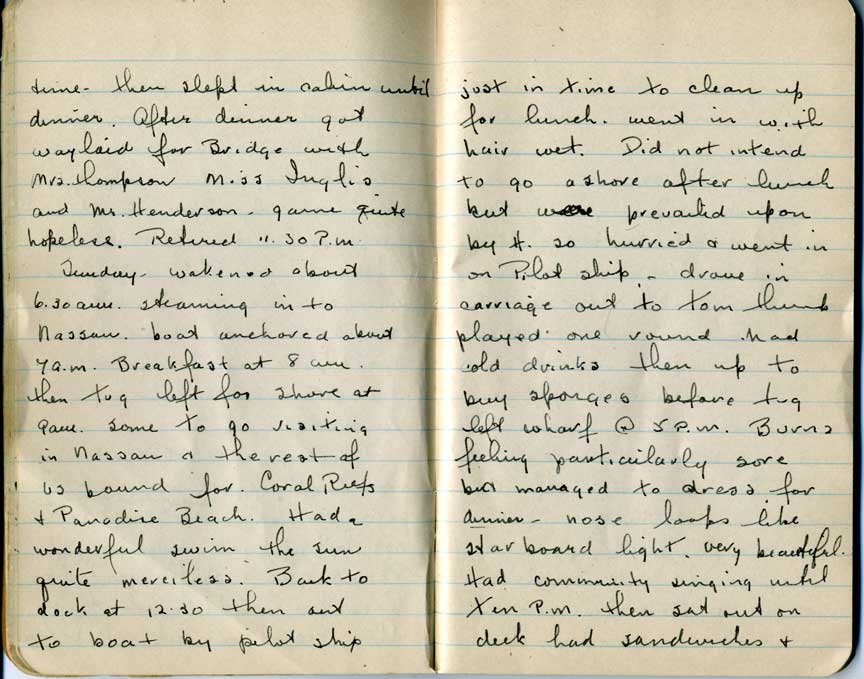 time - then slept in cabin until
dinner. After dinner got
waylaid for Bridge with
Mrs. Thompson Miss Inglis
and Mr. Henderson - game quite
hopeless. Retired 11.30 P.m.
Sunday - wakened about
6.30 am. steaming in to
Nassau. boat anchored about
7 a.m. Breakfast at 8 am.
then tug left for shore at
9am. some to go visiting
in Nassau & the rest of
us bound for. Coral Reefs
& Paradise Beach. Had a
wonderful swim the sun
quite merciless. Back to
dock at 12.30 then out
to boat by pilot ship
just in time to clean up
for lunch. went in with
hair wet. Did not intend
to go ashore after lunch
but prevailed upon
by H. so hurried & went in
on Pilot ship. - drove in
carriage out to Tom thumb
played one round. had
cold drinks then up to
buy sponges before tug
left wharf @ 5 P.m. Burns
feeling particularly sore
but managed to dress for
dinner - nose looks like
starboard light. very beautiful.
Had community singing until
ten P.m. then sat out on
deck had sandwiches &